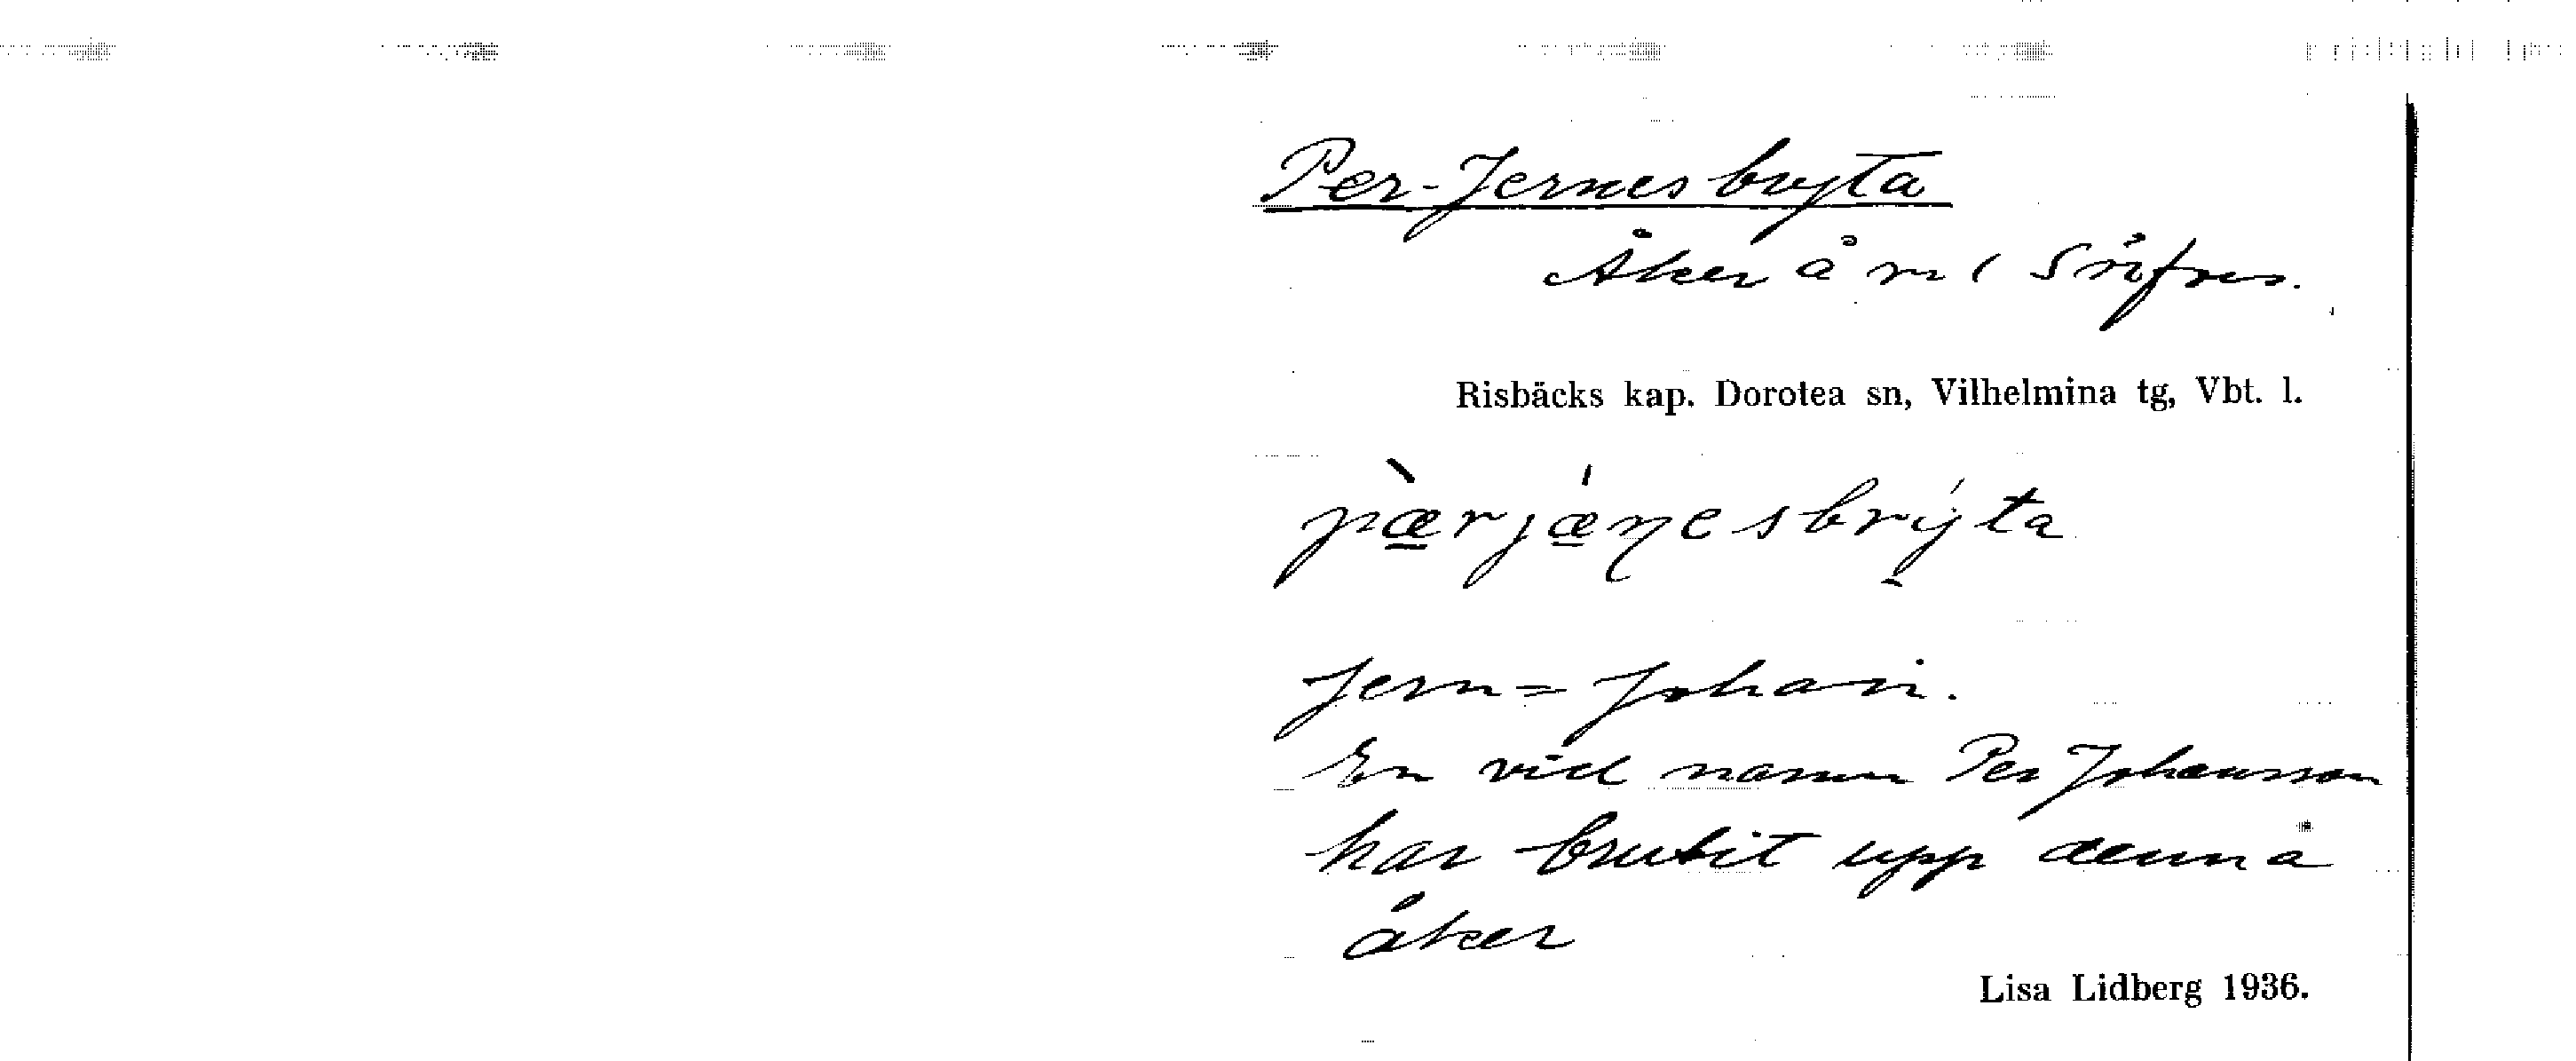 Per-Jernesbryta
Åker å nr 1
Risbäcks kap. Dorotea sn, Vilhelmina tg, Vbt. l.
pæ̀rjæ̍ṇesbrýta
Jern = Johan.
En vid namn Per Johansson
har brutit upp denna
åker
Lisa Lidberg 1936.